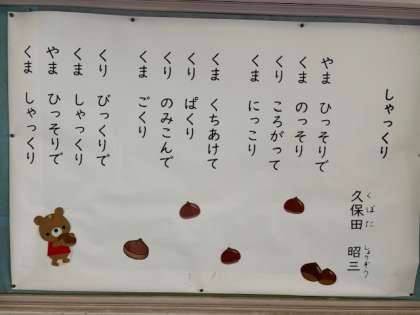 しゃっくり
くぼた しょうぞう
久保田 昭三
やま ひっそりで
くま のっそり
くり ころがって
くま にっこり
くま くちあけて
くり ぱくり
くり のみこんで
くま ごくり
くり びっくりで
くま しゃっくり
やま ひっそりで
くま しゃっくり